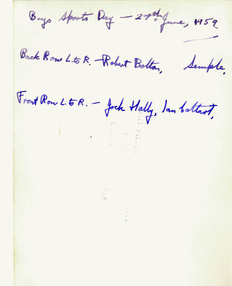 Boys Sports Day — 27th June, 1959.
Back Row L to R. — Robert Bolton, Semple,
Front Row L to R. — Jock Hally, Ian